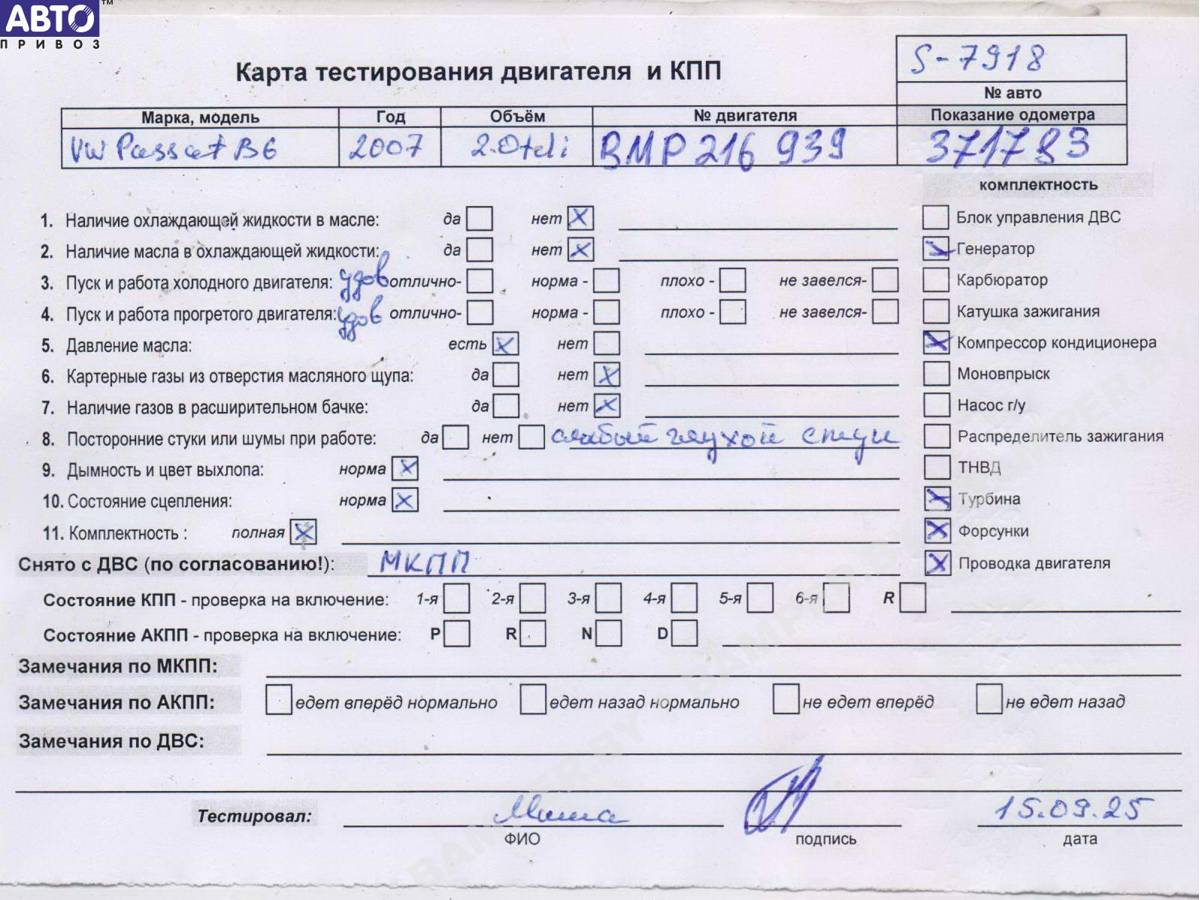 АВТО™
ПРИВОЗ
S-7918
Карта тестирования двигателя и КПП
№ авто
Марка, модель Год Объём № двигателя Показание одометра
VW Passat B6 2007 2.0tdi BMP 216 939 371783
комплектность
1. Наличие охлаждающей жидкости в масле: да нет X
Блок управления ДВС
2. Наличие масла в охлаждающей жидкости: да нет X
X Генератор
3. Пуск и работа холодного двигателя: удов отлично- норма - плохо - не завелся-
Карбюратор
4. Пуск и работа прогретого двигателя: удов отлично- норма - плохо - не завелся-
Катушка зажигания
5. Давление масла: есть X нет
X Компрессор кондиционера
6. Картерные газы из отверстия масляного щупа: да нет X
Моновпрыск
7. Наличие газов в расширительном бачке: да нет X
Насос г/у
8. Посторонние стуки или шумы при работе: да нет слабый глухой стук
Распределитель зажигания
9. Дымность и цвет выхлопа: норма X
ТНВД
10. Состояние сцепления: норма X
X Турбина
11. Комплектность : полная X
X Форсунки
Снято с ДВС (по согласованию!): МКПП
X Проводка двигателя
Состояние КПП - проверка на включение: 1-я 2-я 3-я 4-я 5-я 6-я R
Состояние АКПП - проверка на включение: P R N D
Замечания по МКПП:
Замечания по АКПП: едет вперёд нормально едет назад нормально не едет вперёд не едет назад
Замечания по ДВС:
Тестировал: Миша 15.09.25
ФИО подпись дата
BAMPER.BY